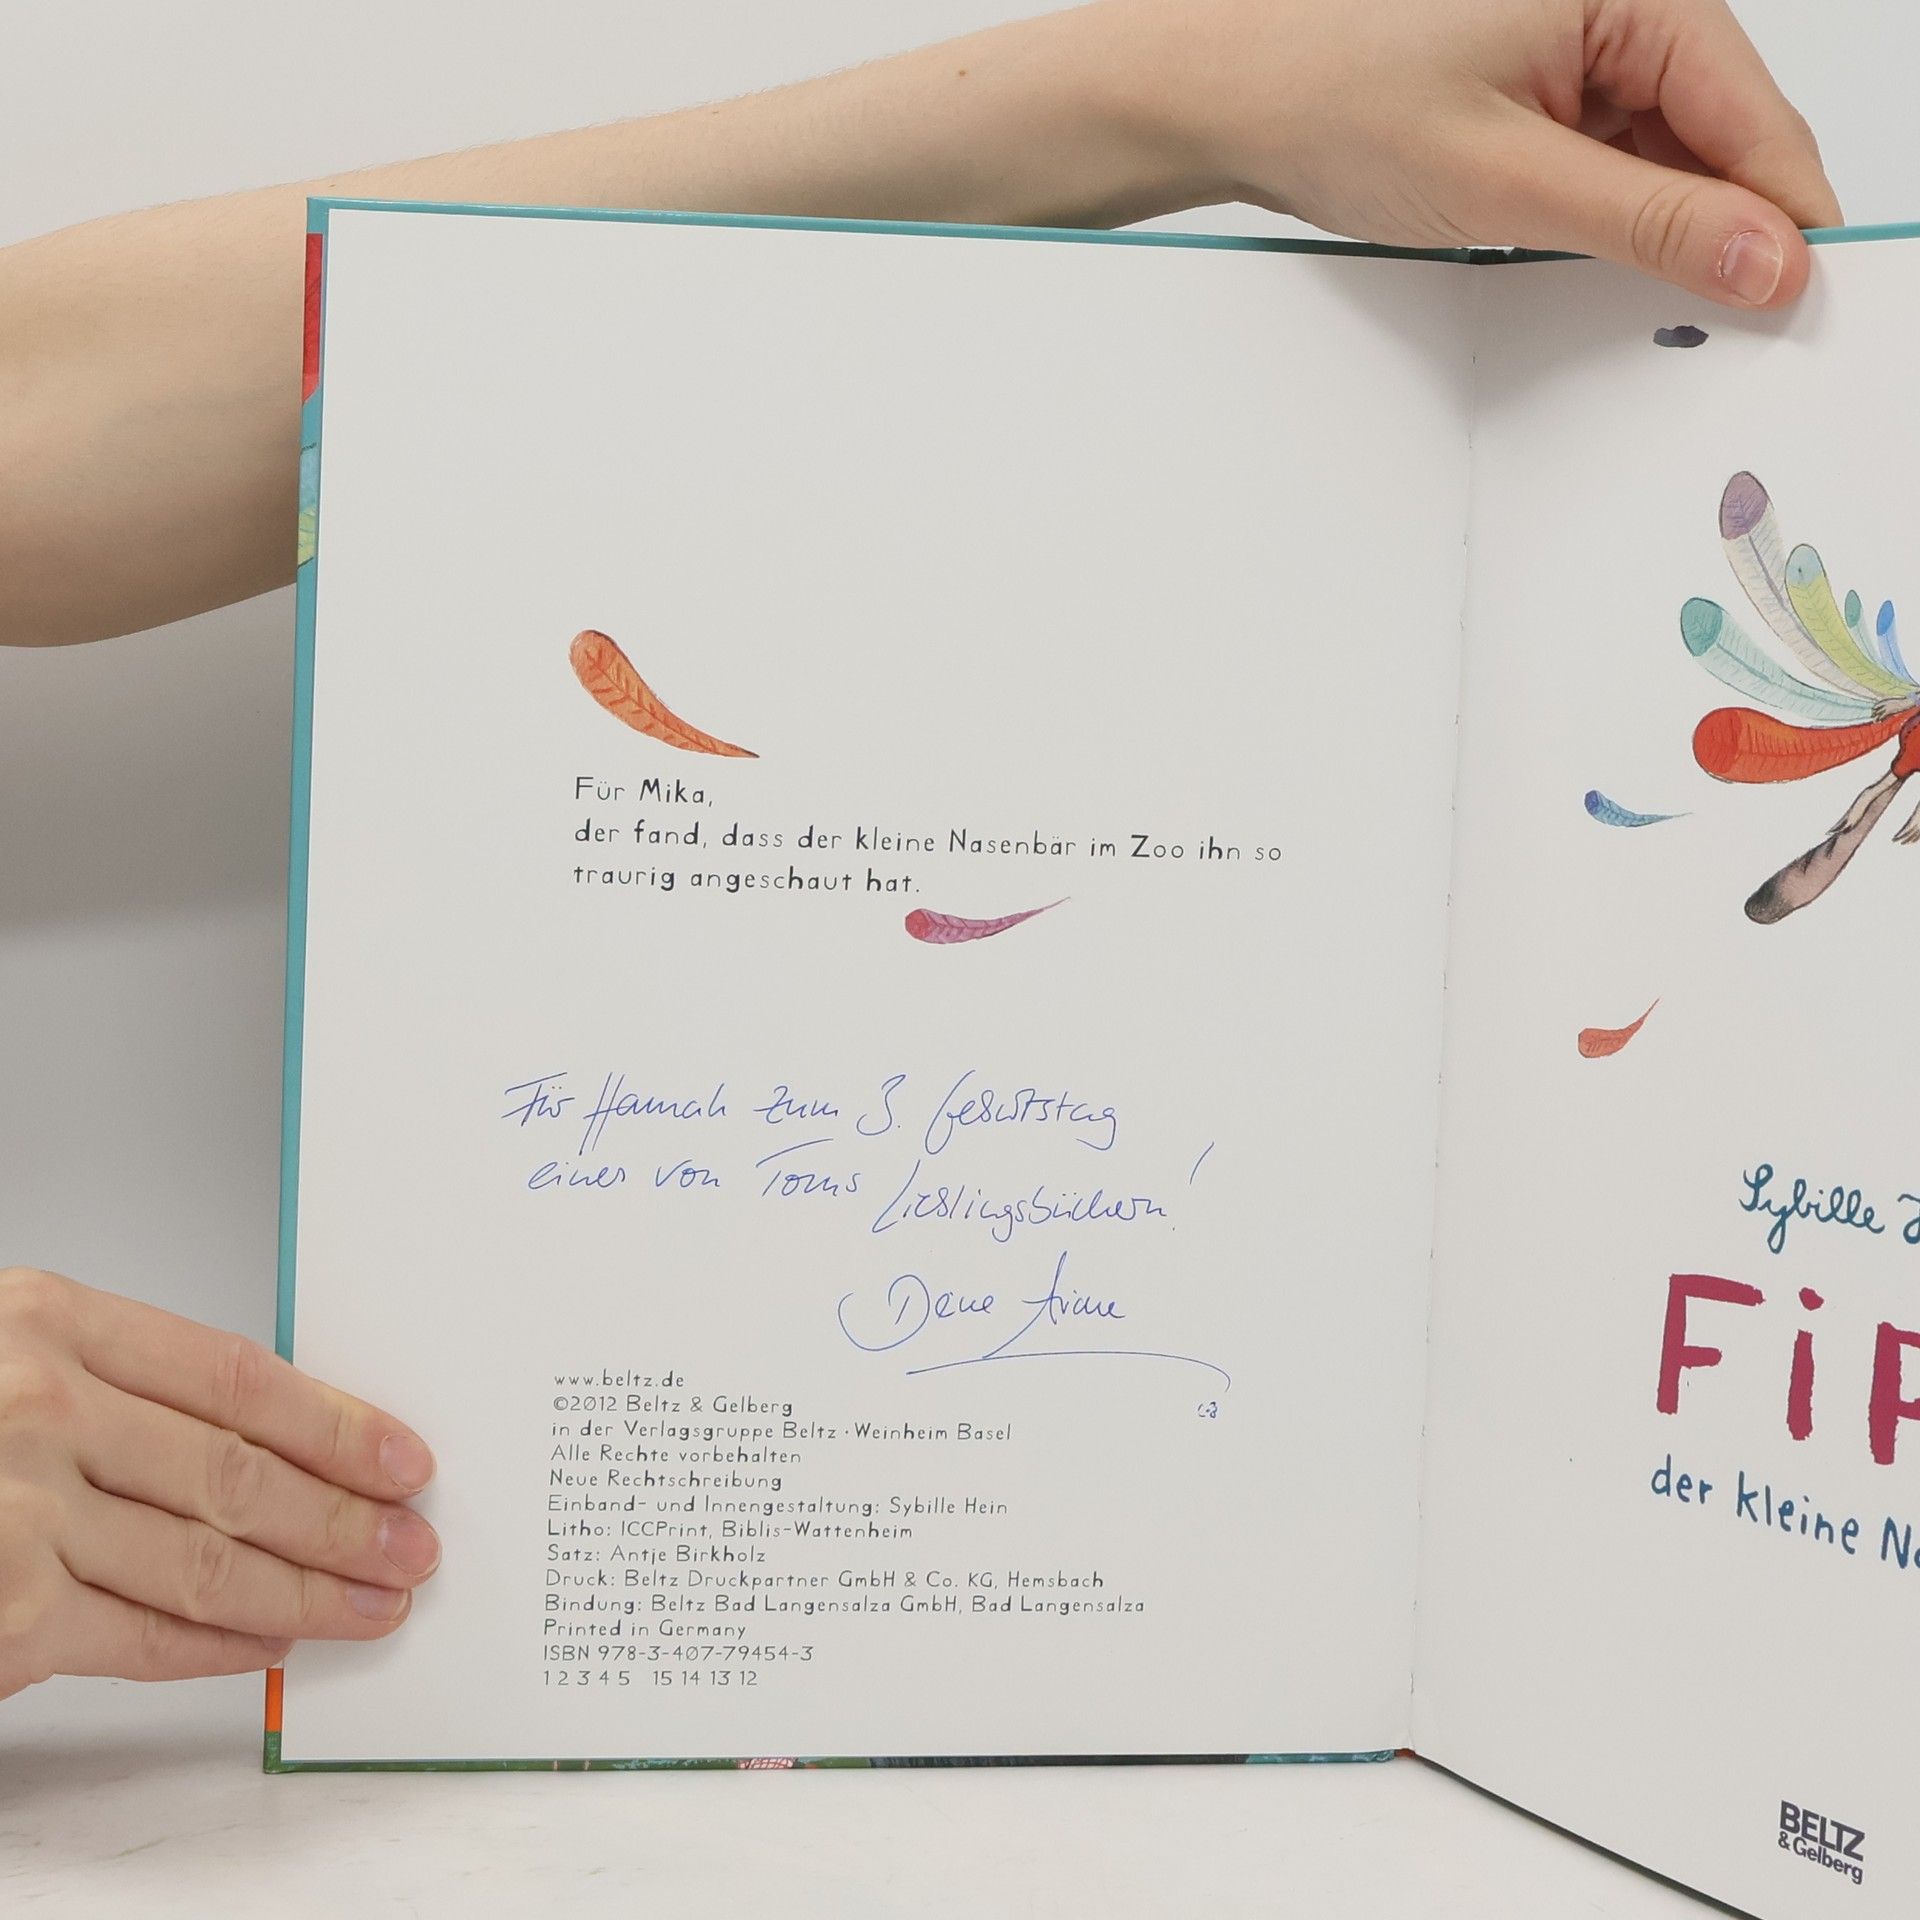 Für Mika,
der fand, dass der kleine Nasenbär im Zoo ihn so
traurig angeschaut hat.
Für Hannah zum 3. Geburtstag
eines von Toms Lieblingsbüchern!
Deine
www.beltz.de
©2012 Beltz & Gelberg
in der Verlagsgruppe Beltz · Weinheim Basel
Alle Rechte vorbehalten
Neue Rechtschreibung
Einband- und Innengestaltung: Sybille Hein
Litho: ICCPrint, Biblis-Wattenheim
Satz: Antje Birkholz
Druck: Beltz Druckpartner GmbH & Co. KG, Hemsbach
Bindung: Beltz Bad Langensalza GmbH, Bad Langensalza
Printed in Germany
ISBN 978-3-407-79454-3
1 2 3 4 5 15 14 13 12
Sybille
Fip
der kleine
BELTZ
& Gelberg